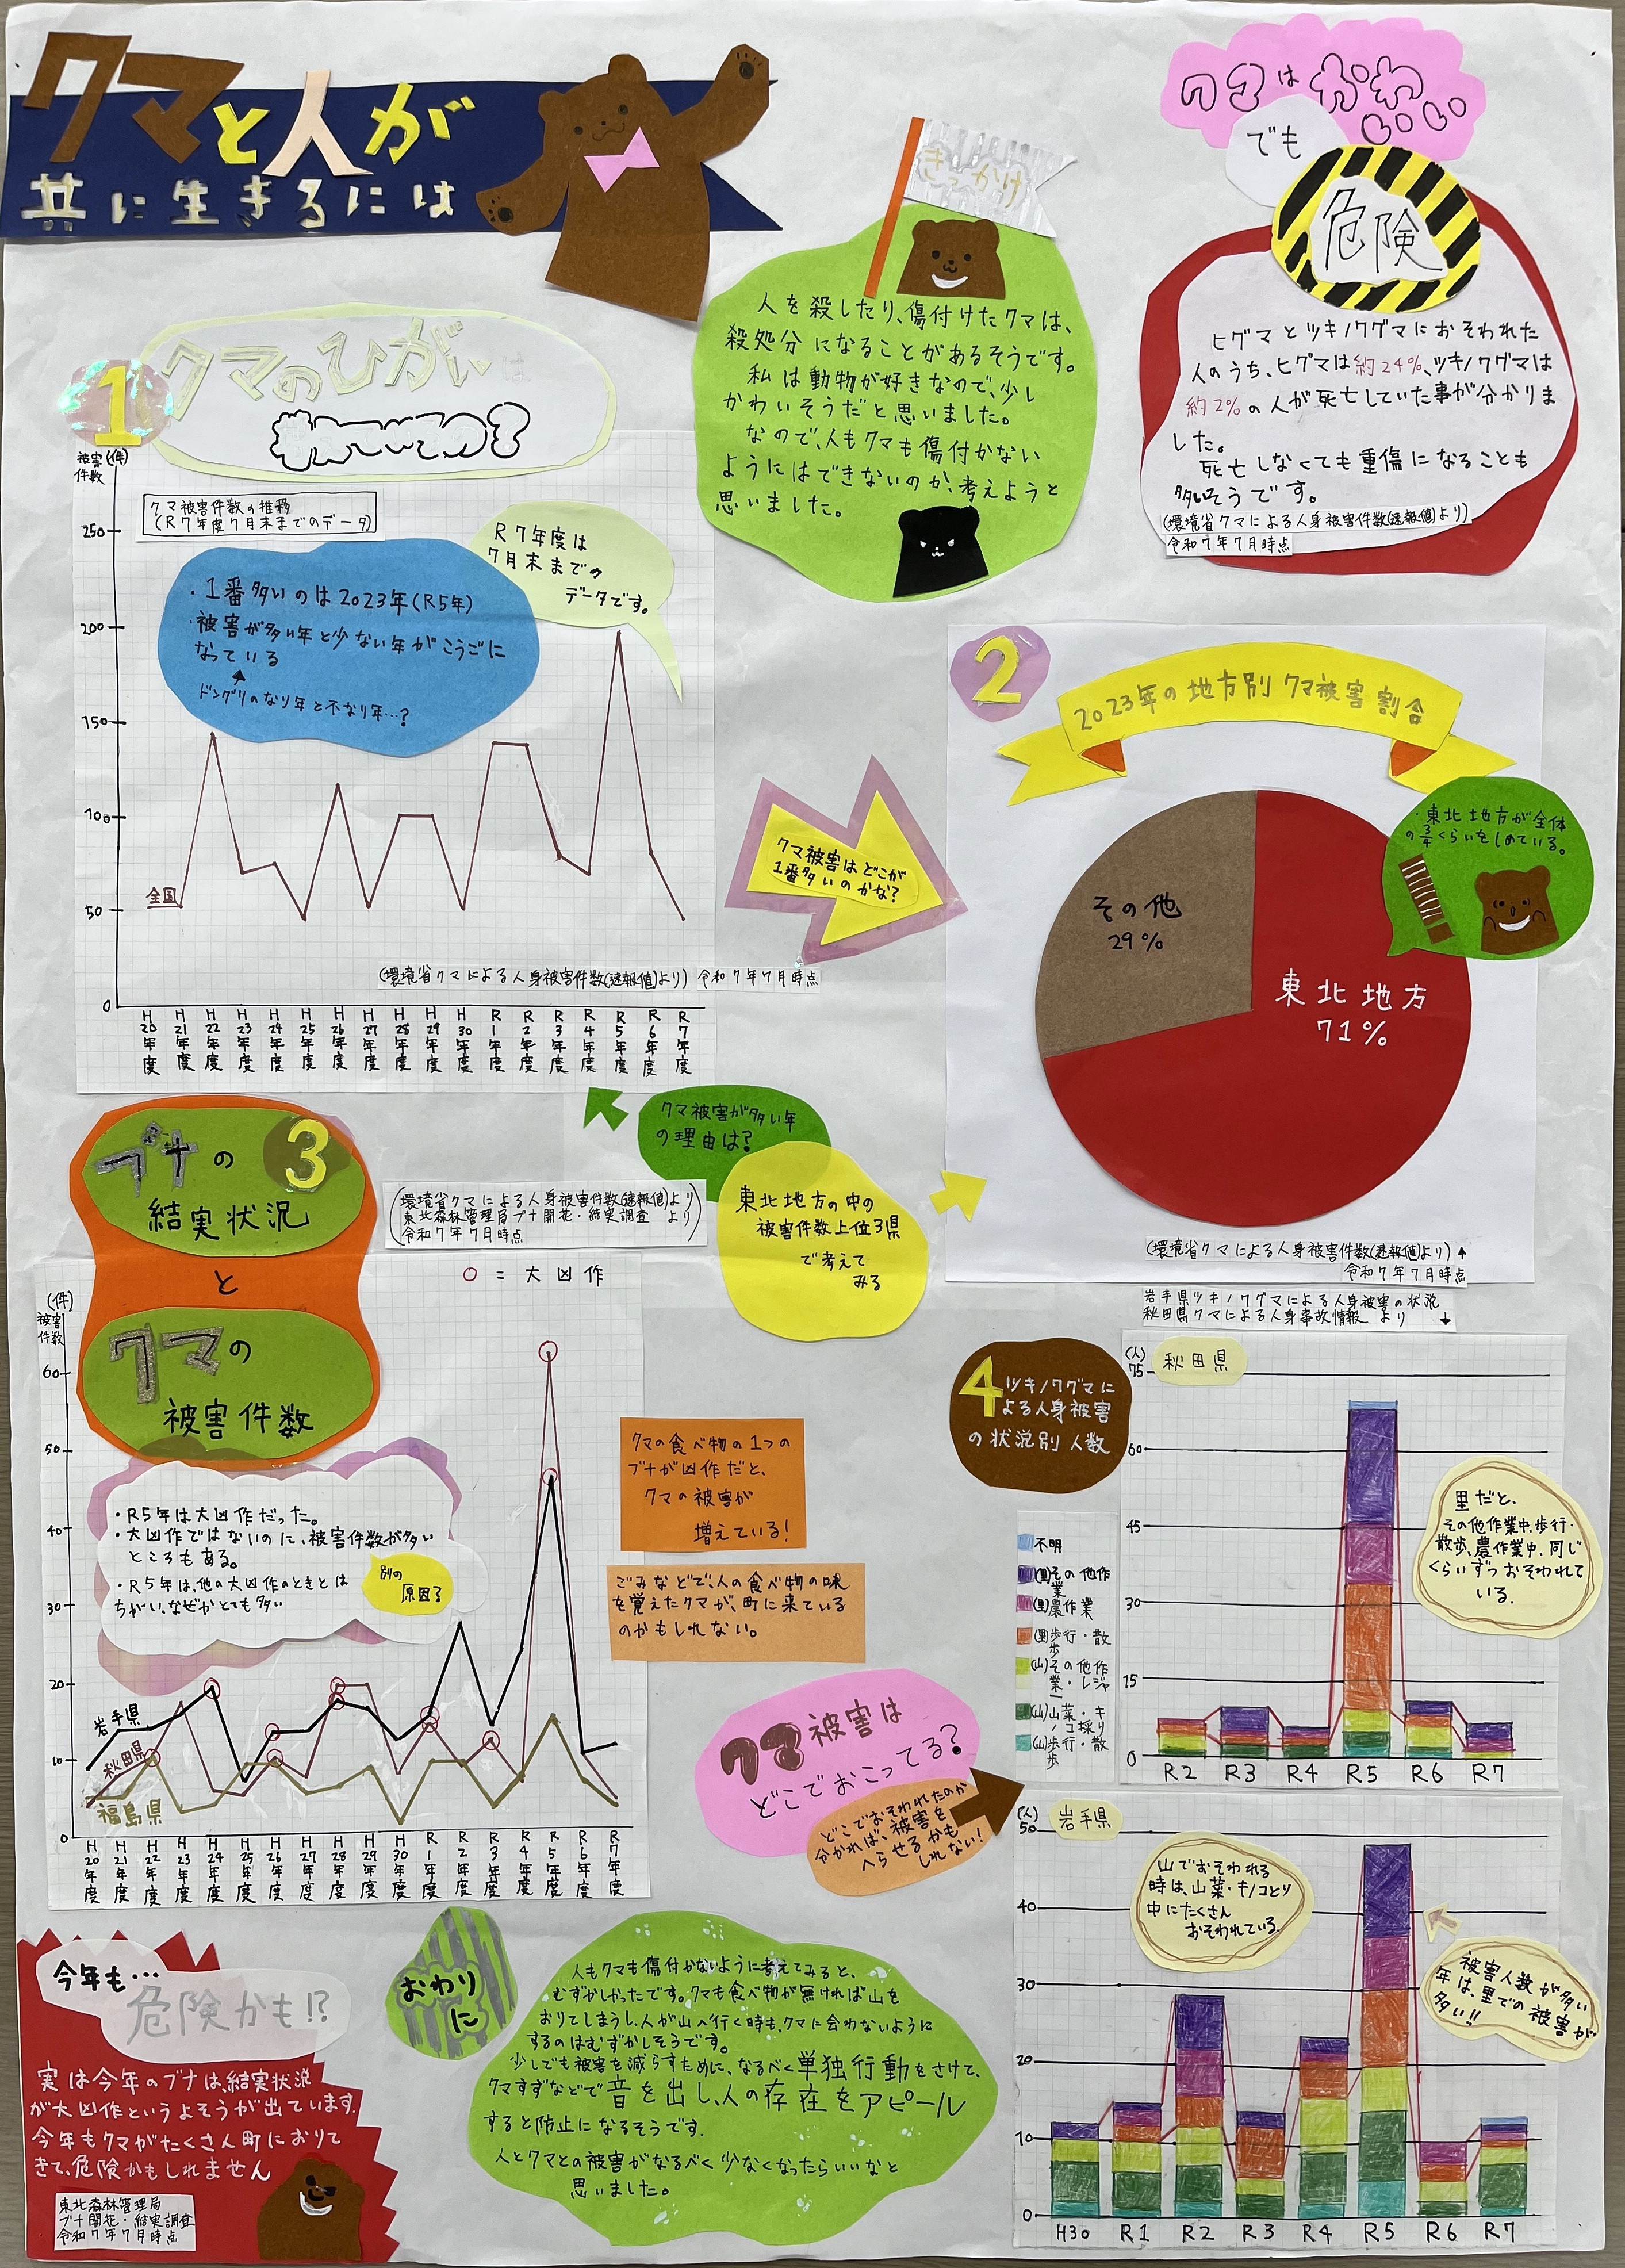 クマと人が
共に生きるには
クマはかわいい
でも
危険
ヒグマとツキノワグマにおそわれた
人のうち、ヒグマは約24%、ツキノワグマは
約2%の人が死亡していた事が分かりま
した。
死亡しなくても重傷になることも
多いそうです。
(環境省クマによる人身被害件数(速報値)より)
令和7年7月時点
きっかけ
人を殺したり、傷付けたクマは、
殺処分になることがあるそうです。
私は動物が好きなので、少し
かわいそうだと思いました。
なので、人もクマも傷付かない
ようにはできないのか、考えようと
思いました。
1
クマのひがいは
被害
件数
(件)
クマ被害件数の推移
(R7年度7月末までのデータ)
R7年度は
7月末までの
データです。
・1番多いのは2023年(R5年)
・被害が多い年と少ない年がこうごに
なっている
ドングリのなり年と不なり年…?
250
200
150
100
50
0
全国
(環境省クマによる人身被害件数(速報値)より) 令和7年7月時点
H20年度 H21年度 H22年度 H23年度 H24年度 H25年度 H26年度 H27年度 H28年度 H29年度 H30年度 R1年度 R2年度 R3年度 R4年度 R5年度 R6年度 R7年度
クマ被害はどこが
1番多いのかな?
2
2023年の地方別クマ被害割合
・東北地方が全体
の3/4くらいをしめている。
その他
29%
東北地方
71%
(環境省クマによる人身被害件数(速報値)より)↑
令和7年7月時点
クマ被害が多い年
の理由は?
東北地方の中の
被害件数上位3県
で考えて
みる
3
ブナの
結実状況
と
クマの
被害件数
(環境省クマによる人身被害件数(速報値)より
東北森林管理局ブナ開花・結実調査 より)
令和7年7月時点
○=大凶作
(件)
被害
件数
60
50
40
30
20
10
0
・R5年は大凶作だった。
・大凶作ではないのに、被害件数が多い
ところもある。
・R5年は、他の大凶作のときとは
ちがい、なぜかとても多い
別の
原因?
岩手県
秋田県
福島県
H20年度 H21年度 H22年度 H23年度 H24年度 H25年度 H26年度 H27年度 H28年度 H29年度 H30年度 R1年度 R2年度 R3年度 R4年度 R5年度 R6年度 R7年度
クマの食べ物の1つの
ブナが凶作だと、
クマの被害が
増えている!
ごみなどで、人の食べ物の味
を覚えたクマが、町に来ている
のかもしれない。
クマ被害は
どこでおこってる?
どこでおそわれたのか
分かれば、被害を
へらせるかも
しれない!
岩手県ツキノワグマによる人身被害の状況
秋田県クマによる人身事故情報 より ↓
4
ツキノワグマに
よる人身被害
の状況別人数
不明
(里)その他作業
(里)農作業
(里)歩行・散歩
(山)その他作業・レジャー
(山)山菜・キノコ採り
(山)歩行・散歩
(人)
秋田県
75
60
45
30
15
0
R2 R3 R4 R5 R6 R7
里だと、
その他作業中、歩行・
散歩、農作業中、同じ
くらいずつおそわれて
いる。
(人)
岩手県
50
40
30
20
10
0
H30 R1 R2 R3 R4 R5 R6 R7
山でおそわれる
時は、山菜・キノコとり
中にたくさん
おそわれている。
被害人数が多い
年は、里での被害が
多い!!
今年も…
危険かも!?
実は今年のブナは、結実状況
が大凶作というよそうが出ています。
今年もクマがたくさん町におりて
きて、危険かもしれません
東北森林管理局
ブナ開花・結実調査
令和7年7月時点
おわりに
人もクマも傷付かないように考えてみると、
むずかしかったです。クマも食べ物が無ければ山を
おりてしまうし、人が山へ行く時も、クマに会わないように
するのはむずかしそうです。
少しでも被害を減らすために、なるべく単独行動をさけて、
クマすずなどで音を出し、人の存在をアピール
すると防止になるそうです。
人とクマとの被害がなるべく少なくなったらいいなと
思いました。